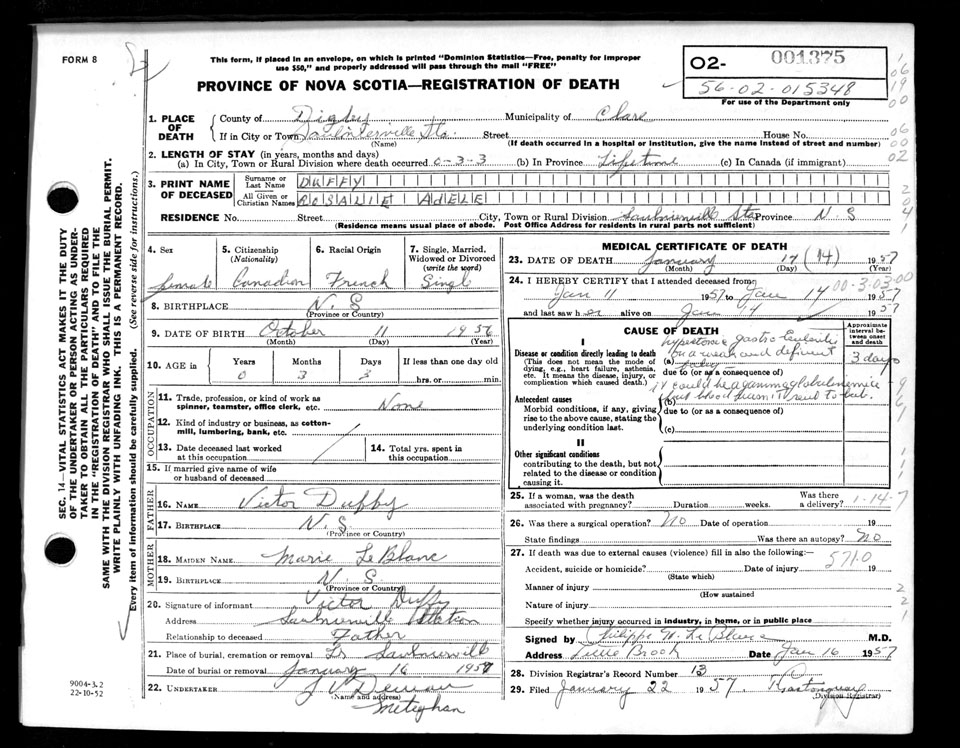 FORM 8
This form, if placed in an envelope, on which is printed "Dominion Statistics—Free, penalty for improper
use $50," and properly addressed will pass through the mail "FREE"
PROVINCE OF NOVA SCOTIA—REGISTRATION OF DEATH
O2- 001375
56-02-015348
For use of the Department only
1. PLACE OF DEATH
County of Digby Municipality of Clare
If in City or Town Saulnierville Sta. Street House No.
(Name) (If death occurred in a hospital or institution, give the name instead of street and number)
2. LENGTH OF STAY (in years, months and days)
(a) In City, Town or Rural Division where death occurred 0-3-3 (b) In Province Lifetime (c) In Canada (if immigrant)
3. PRINT NAME OF DECEASED
Surname or Last Name DUFFY
All Given or Christian Names ROSALIE ADELE
RESIDENCE No. Street City, Town or Rural Division Saulnierville Sta Province N. S
(Residence means usual place of abode. Post Office Address for residents in rural parts not sufficient)
4. Sex 5. Citizenship (Nationality) 6. Racial Origin 7. Single, Married, Widowed or Divorced (write the word)
female Canadian French Singl
8. BIRTHPLACE N. S
(Province or Country)
9. DATE OF BIRTH October 11 1956
(Month) (Day) (Year)
10. AGE in Years Months Days If less than one day old
0 3 3 hrs. or min.
OCCUPATION
11. Trade, profession, or kind of work as spinner, teamster, office clerk, etc. None
12. Kind of industry or business, as cotton-mill, lumbering, bank, etc.
13. Date deceased last worked at this occupation
14. Total yrs. spent in this occupation
15. If married give name of wife or husband of deceased
FATHER
16. NAME Victor Duffy
17. BIRTHPLACE N. S.
(Province or Country)
MOTHER
18. MAIDEN NAME Marie Le Blanc
19. BIRTHPLACE N. S.
(Province or Country)
20. Signature of informant Victor Duffy
Address Saulnierville Station
Relationship to deceased Father
21. Place of burial, cremation or removal Saulnierville
Date of burial or removal January 16 1957
22. UNDERTAKER
(Name and address)
Meteghan
MEDICAL CERTIFICATE OF DEATH
23. DATE OF DEATH January 14 (14) 1957
(Month) (Day) (Year)
24. I HEREBY CERTIFY that I attended deceased from 00-3-03.00
Jan 11 1957 to Jan 14 1957
and last saw her alive on Jan 14 1957
CAUSE OF DEATH
Approximate interval between onset and death
I
Disease or condition directly leading to death
(This does not mean the mode of dying, e.g., heart failure, asthenia, etc. It means the disease, injury, or complication which caused death.)
3 days
due to (or as a consequence of)
Antecedent causes
Morbid conditions, if any, giving rise to the above cause, stating the underlying condition last.
(b)
due to (or as a consequence of)
(c)
II
Other significant conditions
contributing to the death, but not related to the disease or condition causing it.
25. If a woman, was the death associated with pregnancy? Duration weeks. Was there a delivery? 1-14-7
26. Was there a surgical operation? No Date of operation 19
State findings Was there an autopsy? No
27. If death was due to external causes (violence) fill in also the following:—
571.0
Accident, suicide or homicide? Date of injury 19
(State which)
Manner of injury
(How sustained
Nature of injury
Specify whether injury occurred in industry, in home, or in public place
Signed by Philippe H. Le Blanc M.D.
Address Little Brook Date Jan 16 1957
28. Division Registrar's Record Number 13
29. Filed January 22 1957
(Division Registrar)
SEC. 14—VITAL STATISTICS ACT MAKES IT THE DUTY
OF THE UNDERTAKER OR PERSON ACTING AS UNDER-
TAKER TO OBTAIN ALL THE PARTICULARS REQUIRED
IN THE "REGISTRATION OF DEATH" AND TO FILE THE
SAME WITH THE DIVISION REGISTRAR WHO SHALL ISSUE THE BURIAL PERMIT.
WRITE PLAINLY WITH UNFADING INK. THIS IS A PERMANENT RECORD.
Every item of information should be carefully supplied. (See reverse side for instructions.)
9004-3.2
22-10-52